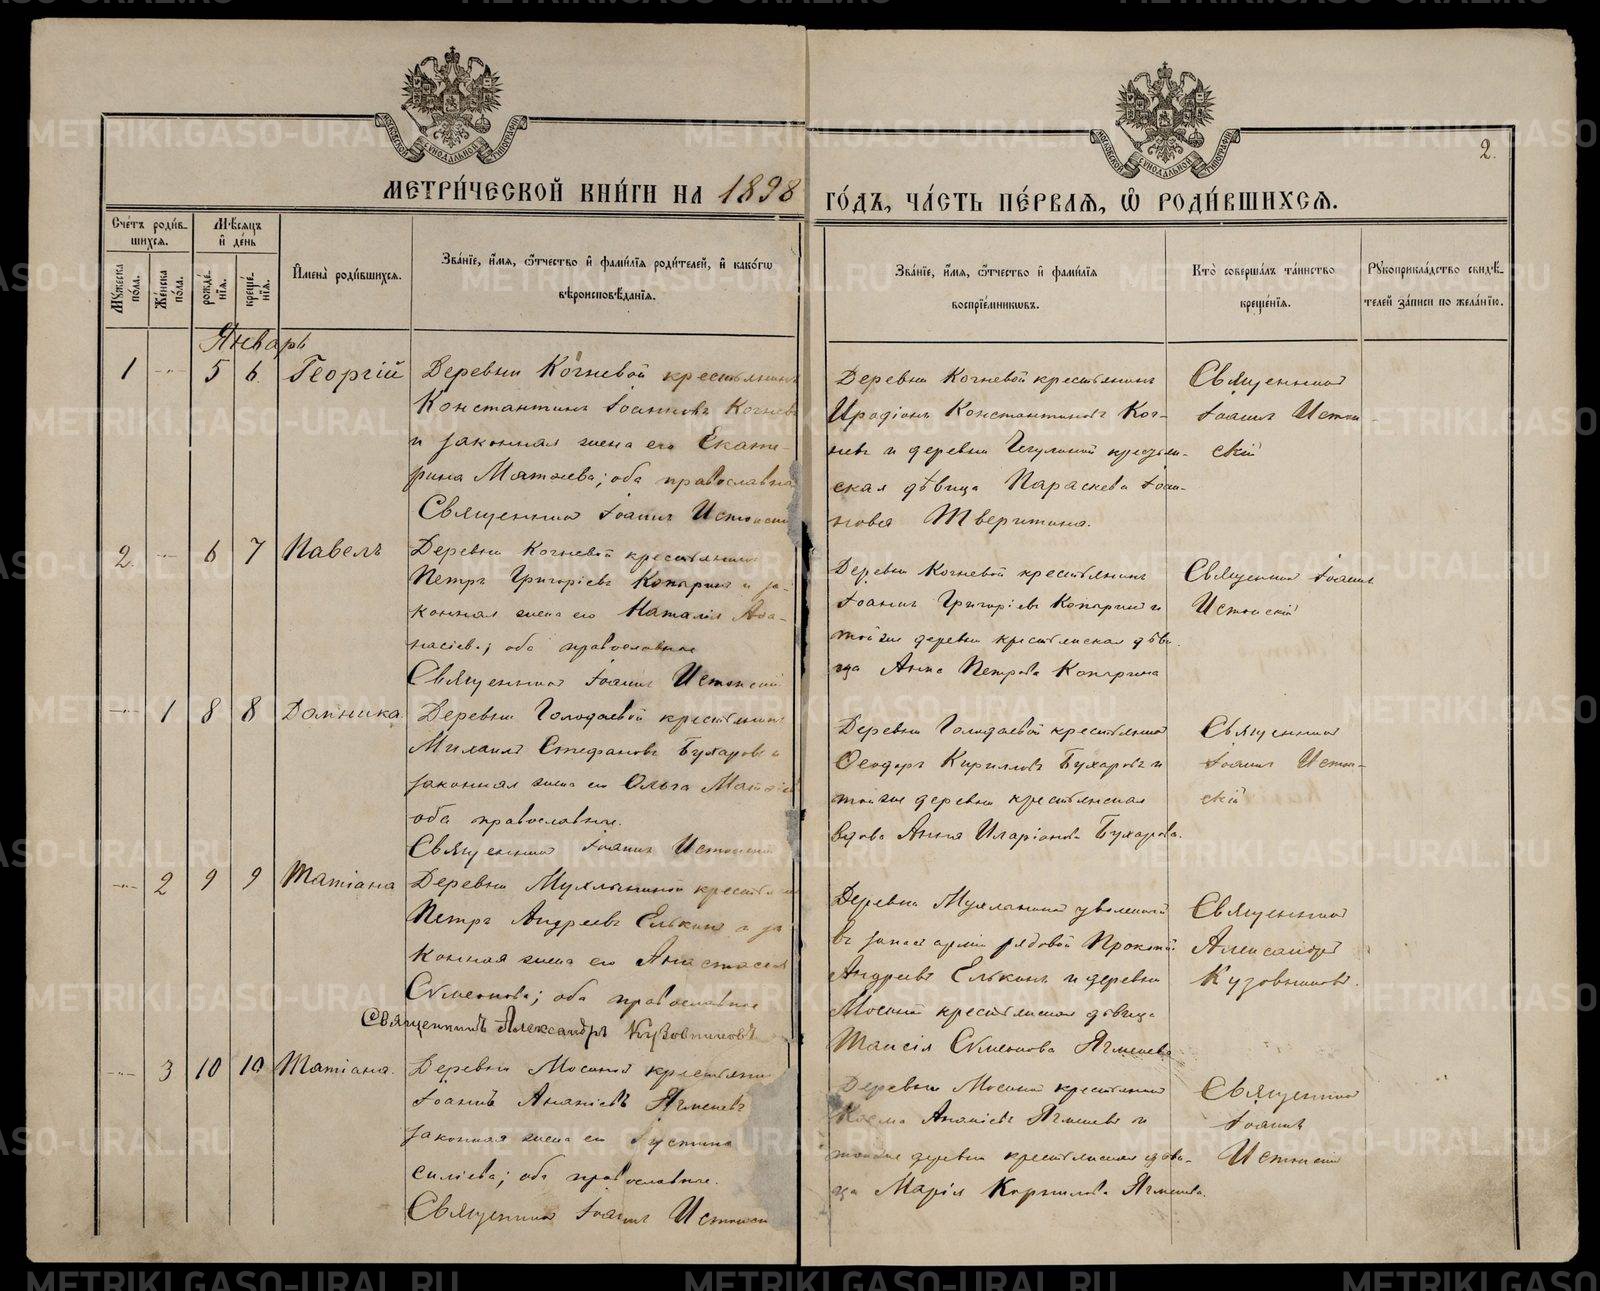 МОСКОВСКОЙ СѴНОДАЛЬНОЙ ТИПОГРАФІИ
МОСКОВСКОЙ СѴНОДАЛЬНОЙ ТИПОГРАФІИ
2.
МЕТРИ́ЧЕСКОЙ КНИ́ГИ НА 1898 ГО́ДЪ, ЧА́СТЬ ПЕ́РВАЯ, Ѡ РОДИ́ВШИХСЯ.
Сче́тъ роди́в-
шихся.
Мѣ́сяцъ
и де́нь
Мꙋжеска по́ла.
Же́нска по́ла.
рожде́нїя.
креще́нїя.
Имена̀ роди́вшихся.
Зва́нїе, и́мя, ѻ҆́тчество и фами́лїя роди́телей, и како́гѡ
вѣроисповѣ́данїя.
Зва́нїе, и́мя, ѻ҆́тчество и фами́лїя
воспрїе́мникѡвъ.
Кто̀ соверша́лъ та́инство
креще́нїя.
Рꙋкоприкла́дство свидѣ́-
телей за́писи по жела́нїю.
Январь
1 5 6 Георгій
Деревни Кочневой крестьянинъ
Константинъ Іоанновъ Кочневъ
и законная жена его Екате-
рина Матѳеева; оба православн
Священникъ Іоаннъ Истомин
Деревни Кочневой крестьянинъ
Иродіонъ Константиновъ Коч-
невъ и деревни крестьян-
ская дѣвица Параскева Іоан-
нова Тверитина.
Священникъ
Іоаннъ Истом
скій
2. 6 7 Павелъ
Деревни Кочневой крестьянинъ
Петръ Григоріевъ Копыринъ и за-
конная жена его Наталія Аѳа-
насіева; оба православные
Священникъ Іоаннъ
Деревни Кочневой крестьянинъ
Іоаннъ Григоріевъ Копыринъ и
той же деревни крестьянская дѣви-
ца Анна Петрова Копырина
Священникъ Іоаннъ
1 8 8 Домника
Деревни Голодаевой крестьянинъ
Михаилъ Стефановъ Бухаровъ и
законная жена его Ольга
оба православные.
Священникъ Іоаннъ
Деревни Голодаевой крестьянинъ
Ѳеодоръ Кирилловъ Бухаровъ и
той же деревни крестьянская
вдова Анна Иларіонова Бухарова.
Священникъ
Іоаннъ
скій
2 9 9 Татіана
Деревни крестьянинъ
Петръ Андреевъ Елькинъ и за
конная жена его Анастасія
Сѵмеонова; оба православные
Священникъ Александръ Кузовниковъ
Деревни уволенный
въ запасъ арміи рядовой Прокопій
Андреевъ Елькинъ и деревни
Мосиной крестьянская дѣвица
Таисія Сѵмеонова Ячменева
Священникъ
Александръ
Кузовниковъ.
3 10 10 Татіана.
Деревни Мосиной крестьянинъ
Іоаннъ Ананіевъ Ячменевъ
законная жена его Іустина
силіева; оба православные.
Священникъ Іоаннъ
Деревни Мосиной крестьянинъ
Косма Ананіевъ Ячменевъ и
той же деревни крестьянская дѣви-
ца Марія Корнилова Ячменева.
Священникъ
Іоаннъ
METRIKI.GASO-URAL.RU